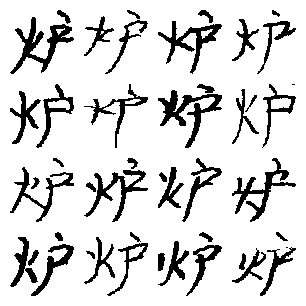 炉炉炉炉
炉炉炉炉
炉炉炉炉
炉炉炉炉